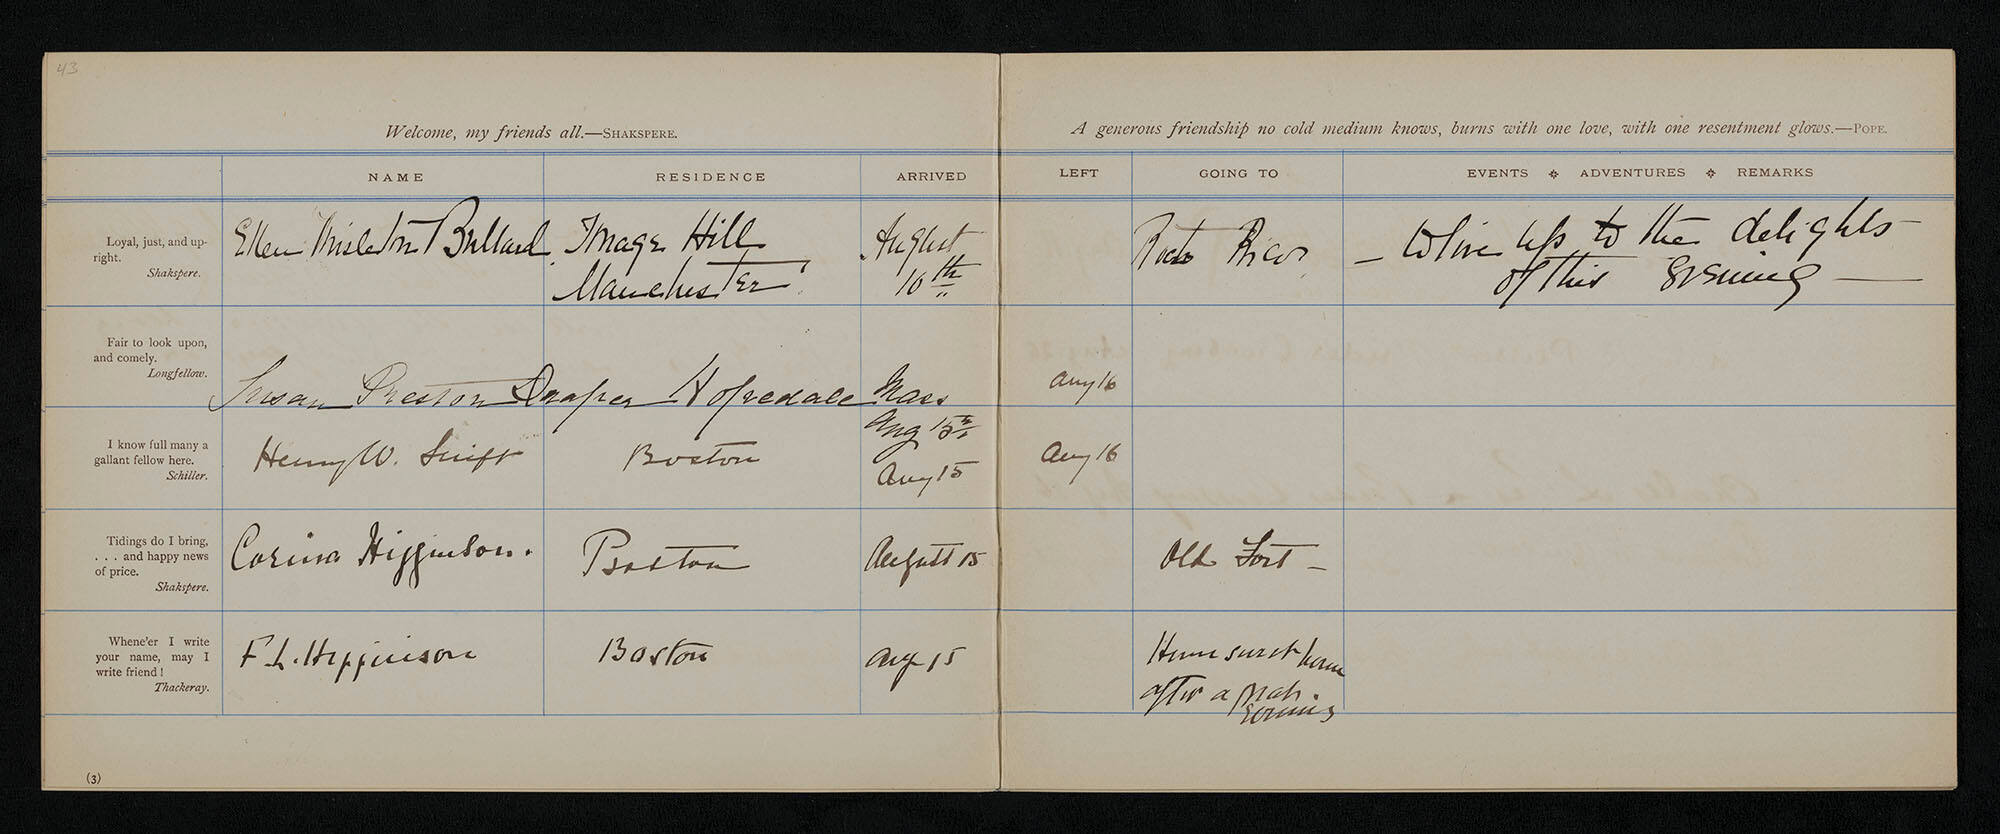 43
Welcome, my friends all.—SHAKSPERE.
A generous friendship no cold medium knows, burns with one love, with one resentment glows.—POPE.
NAME RESIDENCE ARRIVED LEFT GOING TO EVENTS ADVENTURES REMARKS
Loyal, just, and up-
right.
Shakspere.
Ellen Misletn Bullard Image Hill
Manchester
August
10th
Porto Rico
— to live up to the delights
of this evening —
Fair to look upon,
and comely.
Longfellow.
Susan Preston Draper Hopedale Mass
Aug 15th
Aug 16
I know full many a
gallant fellow here.
Schiller.
Henry W. Swift Boston Aug 15 Aug 16
Tidings do I bring,
. . . and happy news
of price.
Shakspere.
Corina Higginson. Boston August 15 Old Fort –
Whene'er I write
your name, may I
write friend!
Thackeray.
F L. Higginson Boston Aug 15
Home sweet home
after a
Evening
(3)